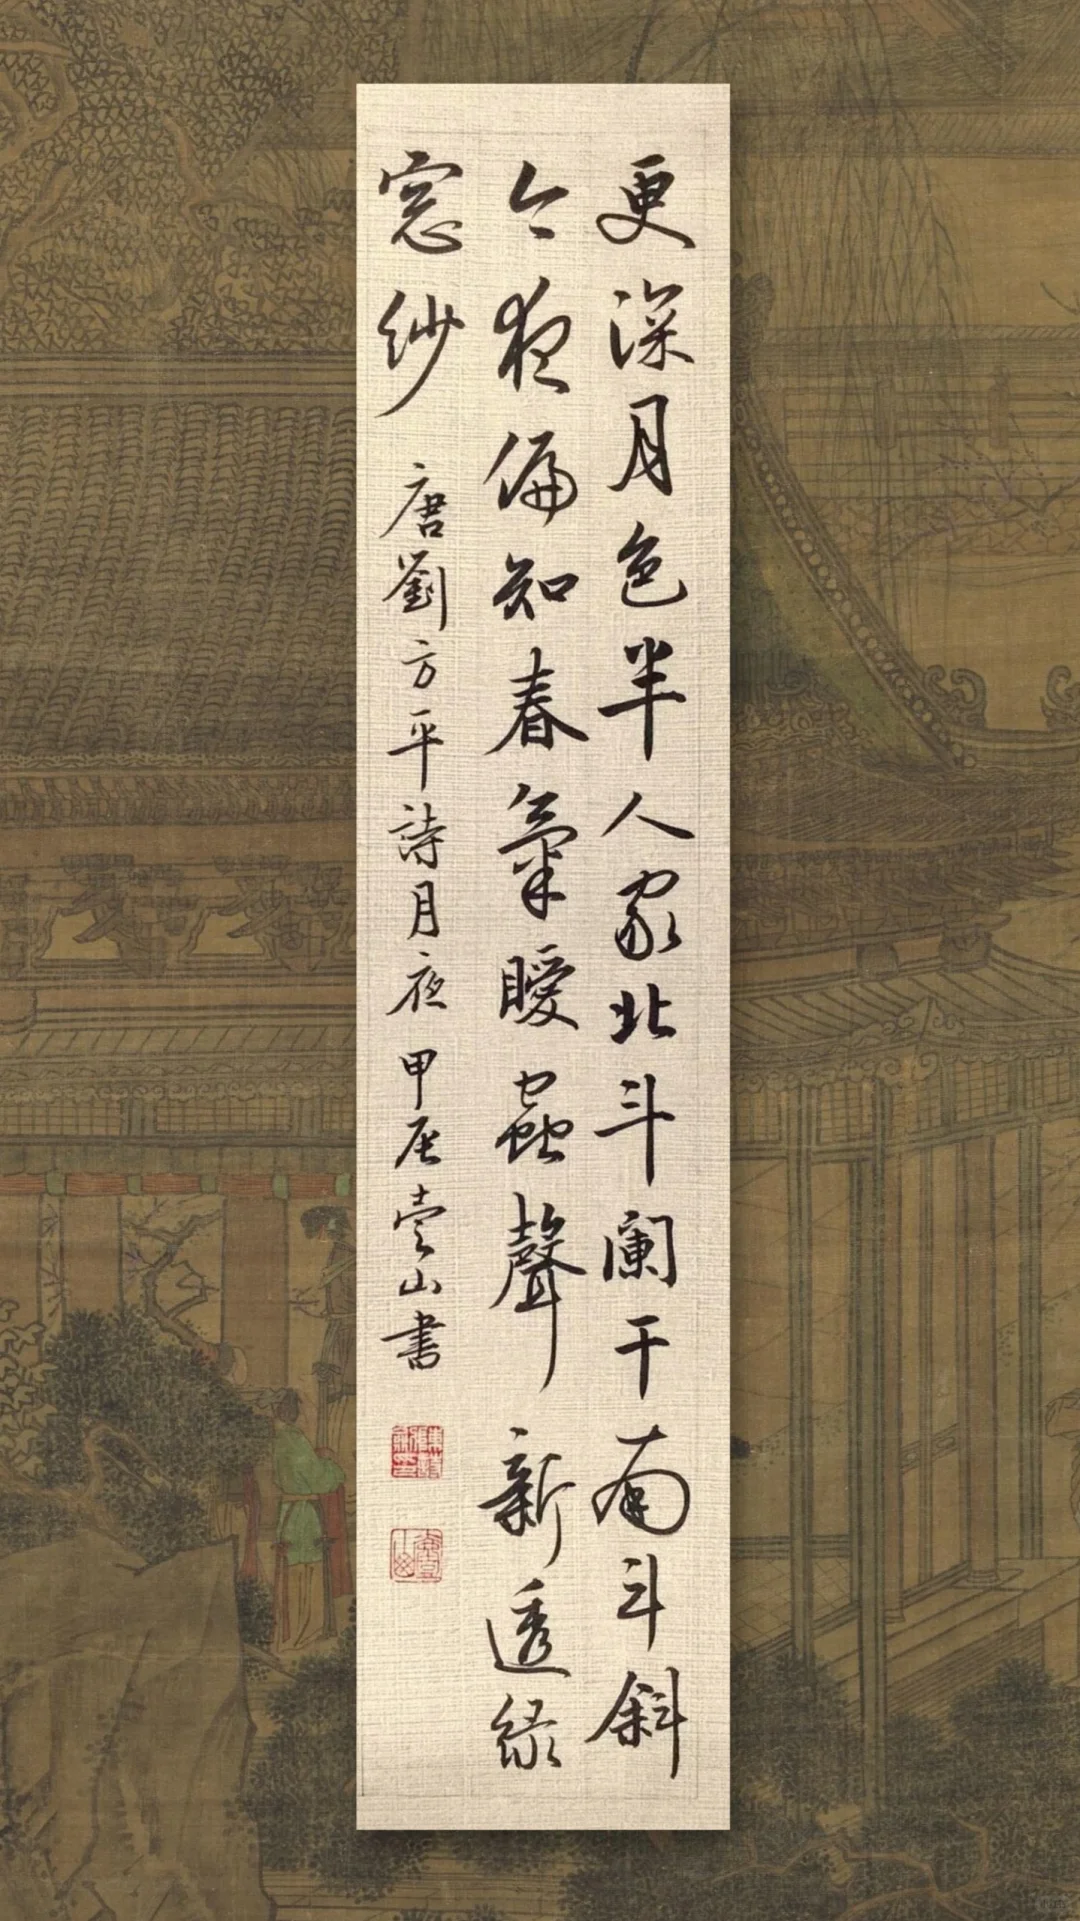 更深月色半人家北斗阑干南斗斜
今夜偏知春氣暖蟲聲新透绿
窓纱 唐劉方平詩月夜 甲辰壹山書